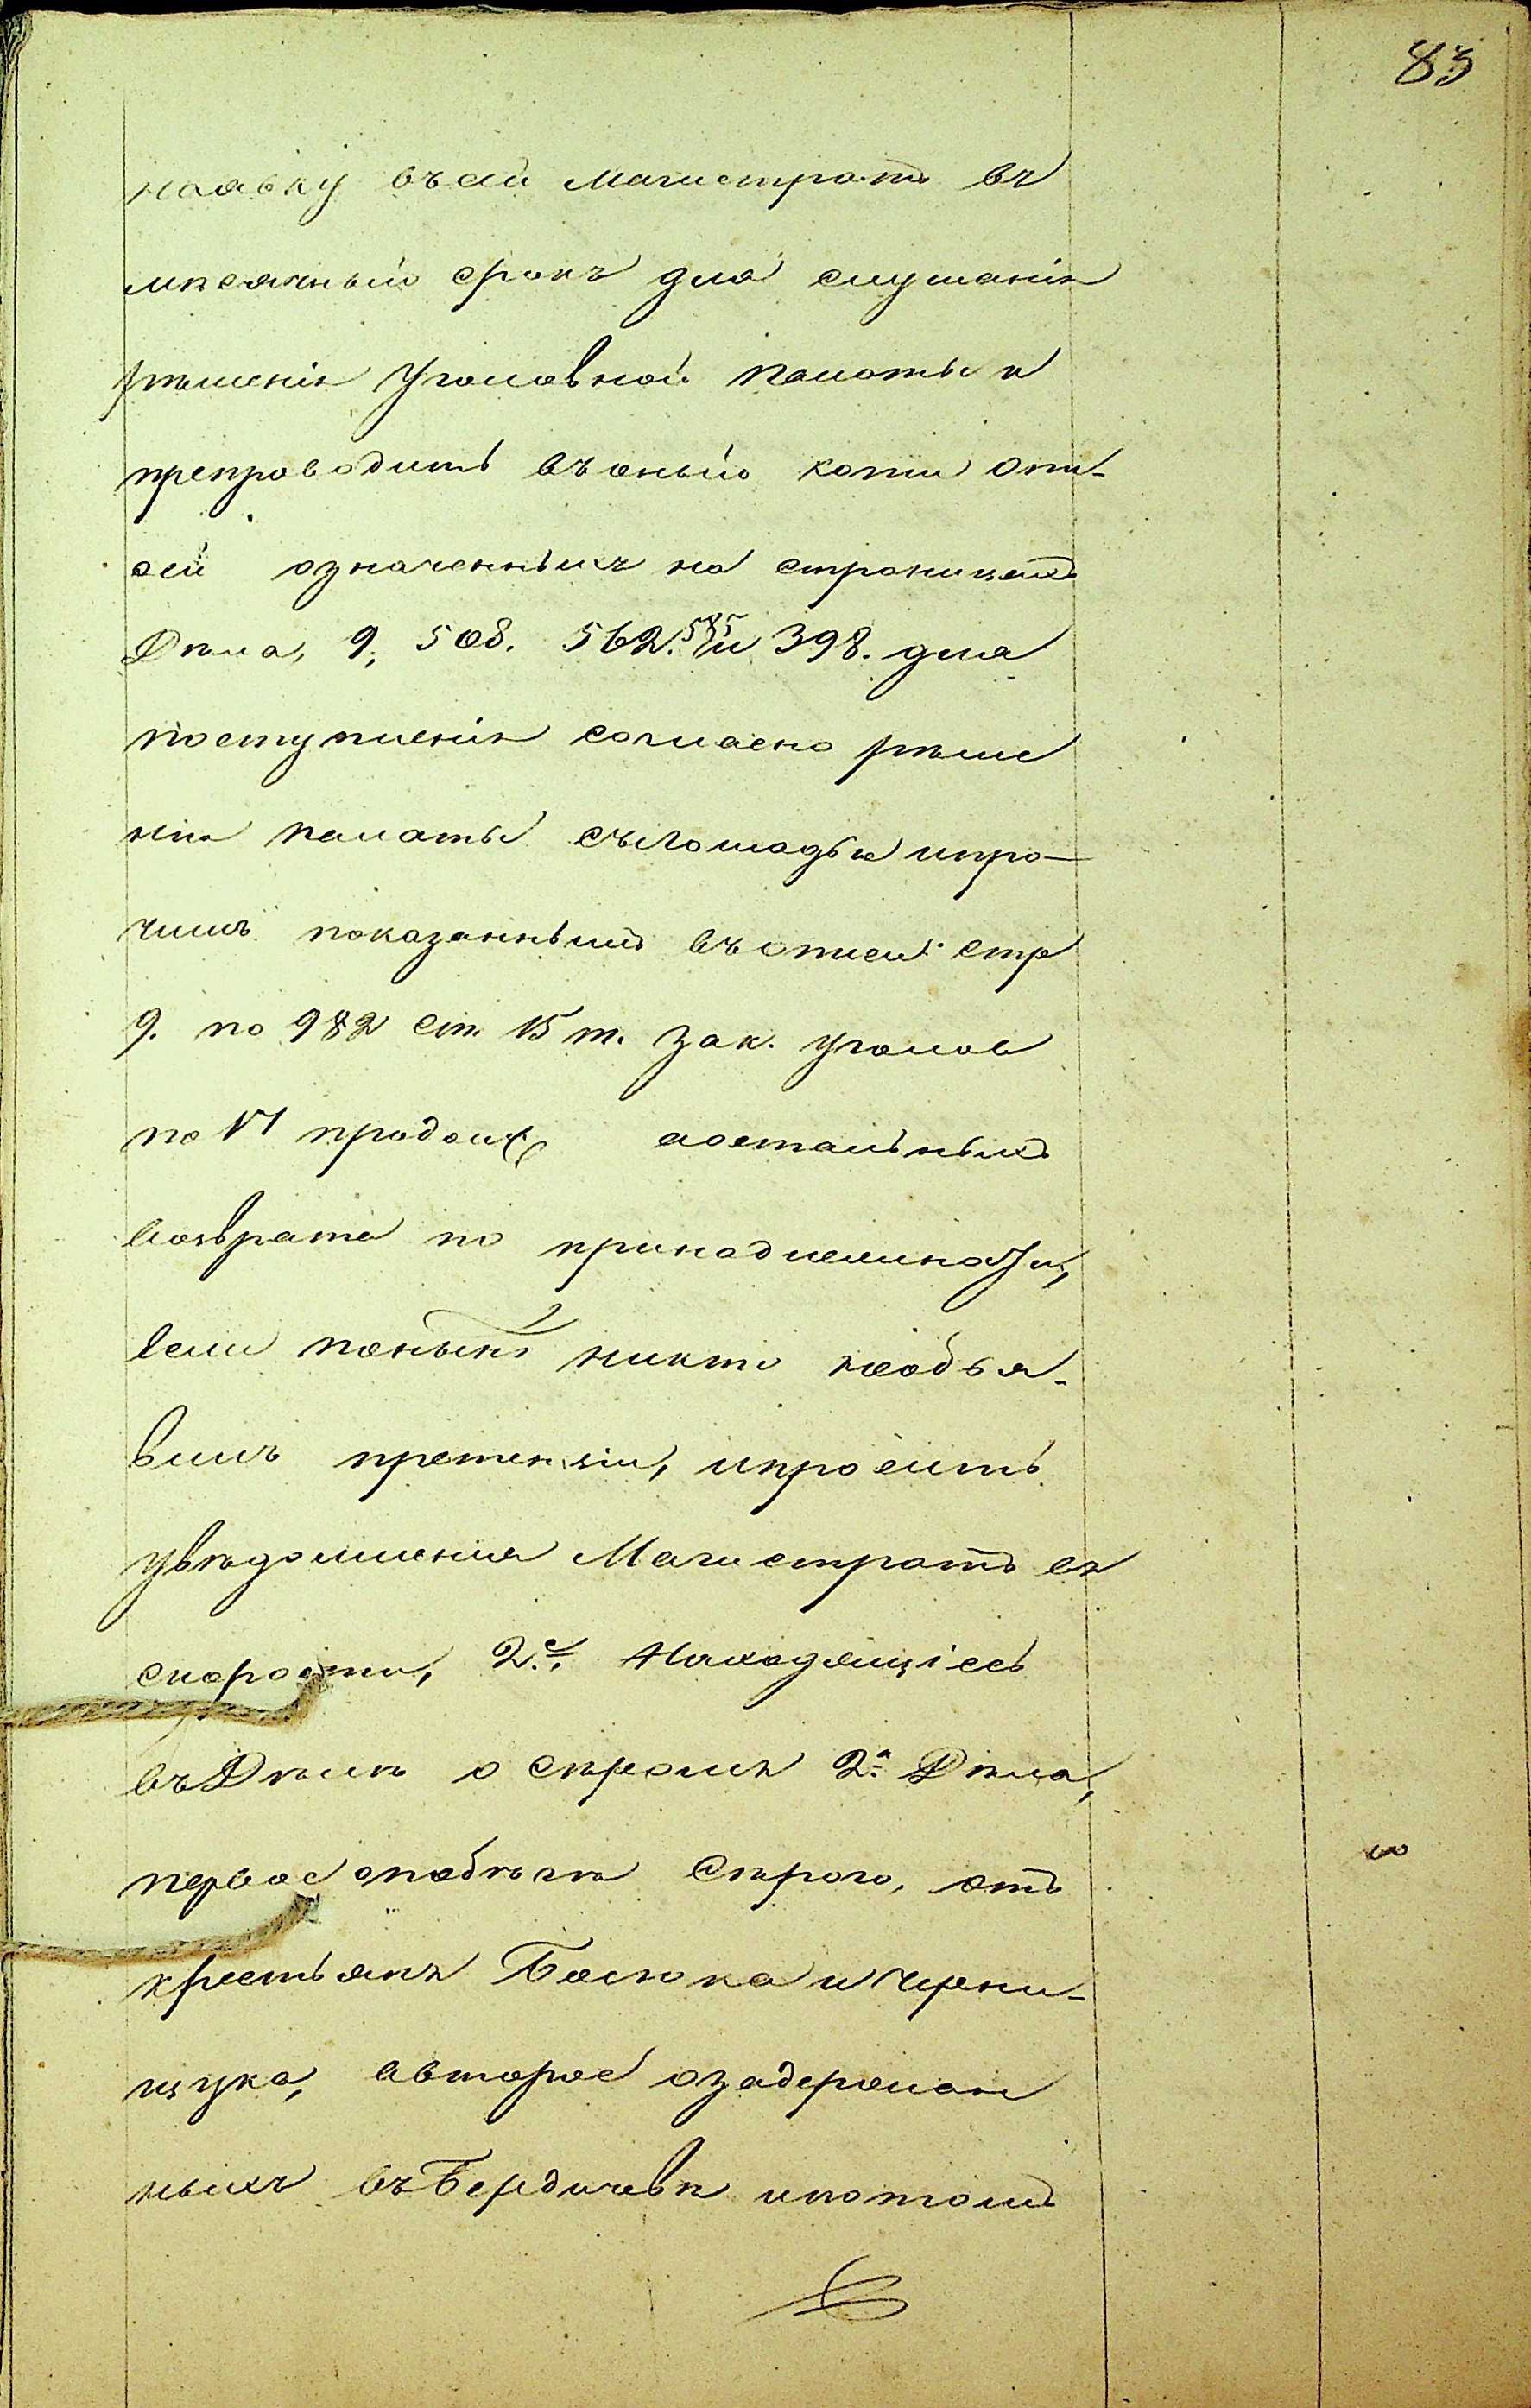 83
наявку въсей Магистратъ въ
мѣсячный срокъ для слушанія
рѣшенія Уголовной Палаты и
препроводить въоный копіи опи-
сей означенныхъ на страницахъ
Дѣла, 9, 508. 562. 585 и 398. для
поступленія согласно рѣше
нія палаты съ лошадьми ипро-
чимъ показаннымъ въописи стр
9. по 982 ст. 15 т. зак. уголов
по VI продолж аостальныхъ
возврата по принадлежности,
если понынѣ никто необъя-
вилъ претензіи, ипросить
увѣдомленія Магистратъ въ
скорости, 2е, Находящіесь
въ Дѣлѣ о Сѣромъ 2а Дѣла,
первое опобѣгѣ Сѣрого, отъ
крестьянъ Басюка и Черни-
щука, авторое озадержан
ныхъ въ Бердичевѣ ипотомъ